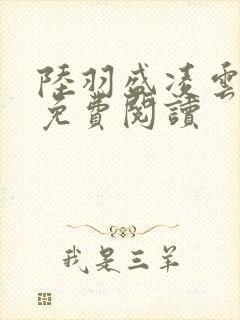 陸羽盛凌雲
免費閱讀
我是三羊